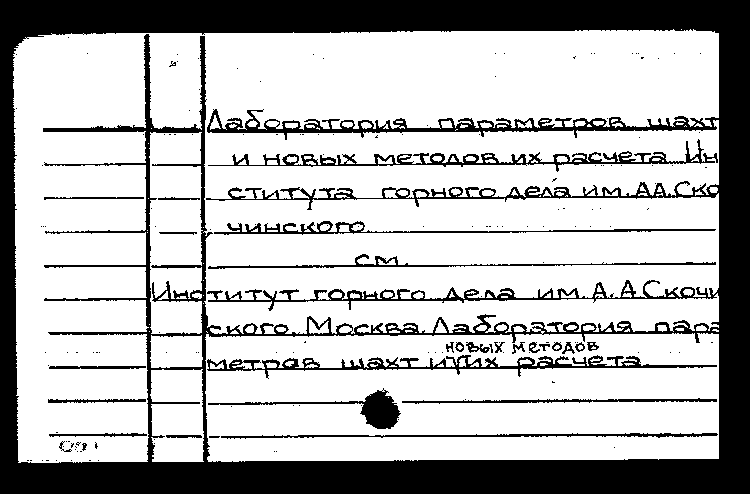 Лаборатория параметров шахт
и новых методов их расчета Ин
ститута горного дела им. А.А. Ско
чинского
см.
Институт горного дела им. А. А Скочи
ского. Москва. Лаборатория пара
новых методов
метров шахт и их расчета